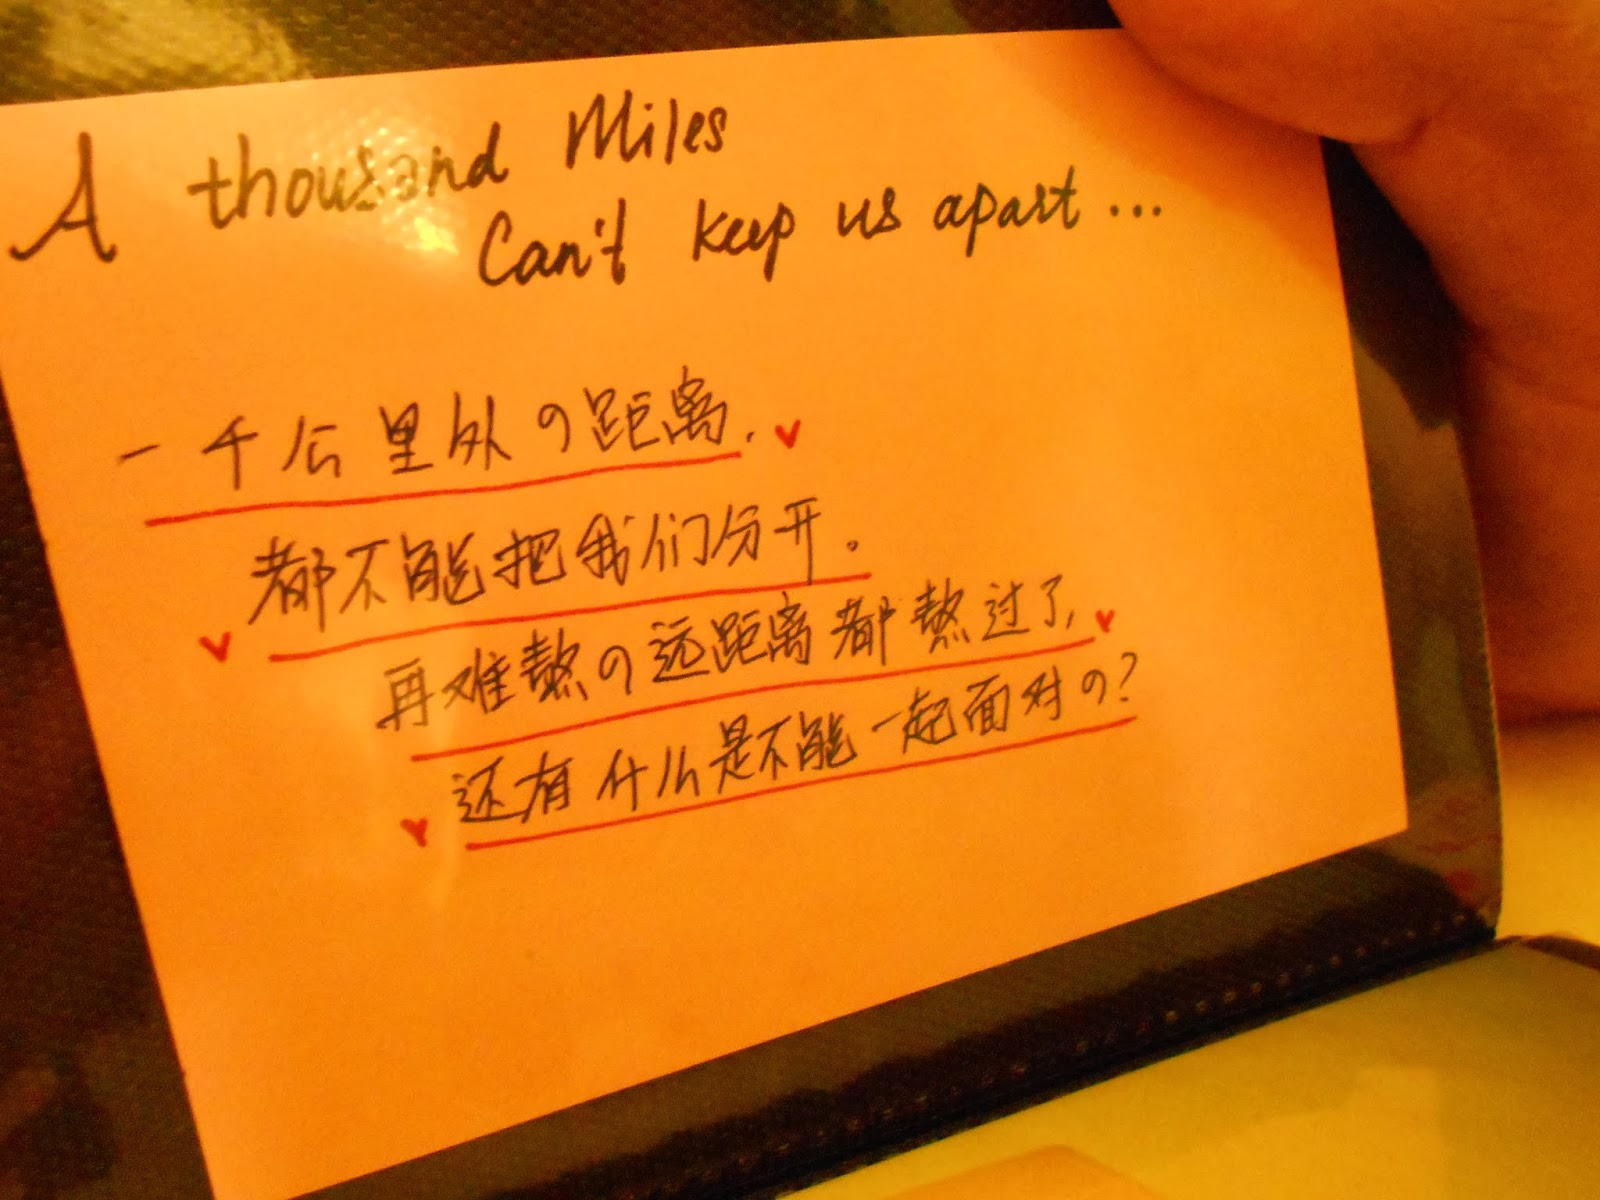 A thousand Miles
Can't keep us apart...
一千公里外の距离,
都不能把我们分开。
再难熬の远距离都熬过了,
还有什么是不能一起面对の?